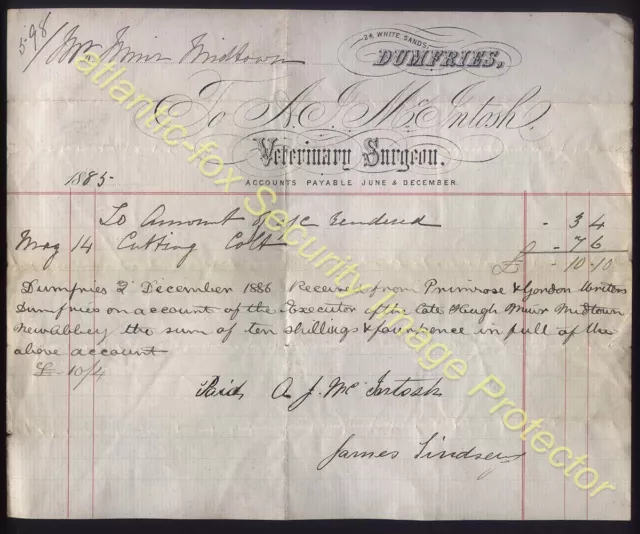 598/ Mr Muir Midtown
24, WHITE SANDS,
DUMFRIES,
To A. J. McIntosh.
Veterinary Surgeon.
1885. ACCOUNTS PAYABLE JUNE & DECEMBER.
To Amount of a/c rendered - 3 4
May 14 Cutting Colt - 7 6
£ - 10 - 10
Dumfries 2 December 1886 Received from Primrose & Gordon Writers
Dumfries on account of the Executor of the late Hugh Muir Midtown
Newabbey the sum of ten shillings & fourpence in full of the
above account
£ - 10/4
Paid A J. McIntosh
James Lindsey
atlantic-fox Security Image Protector